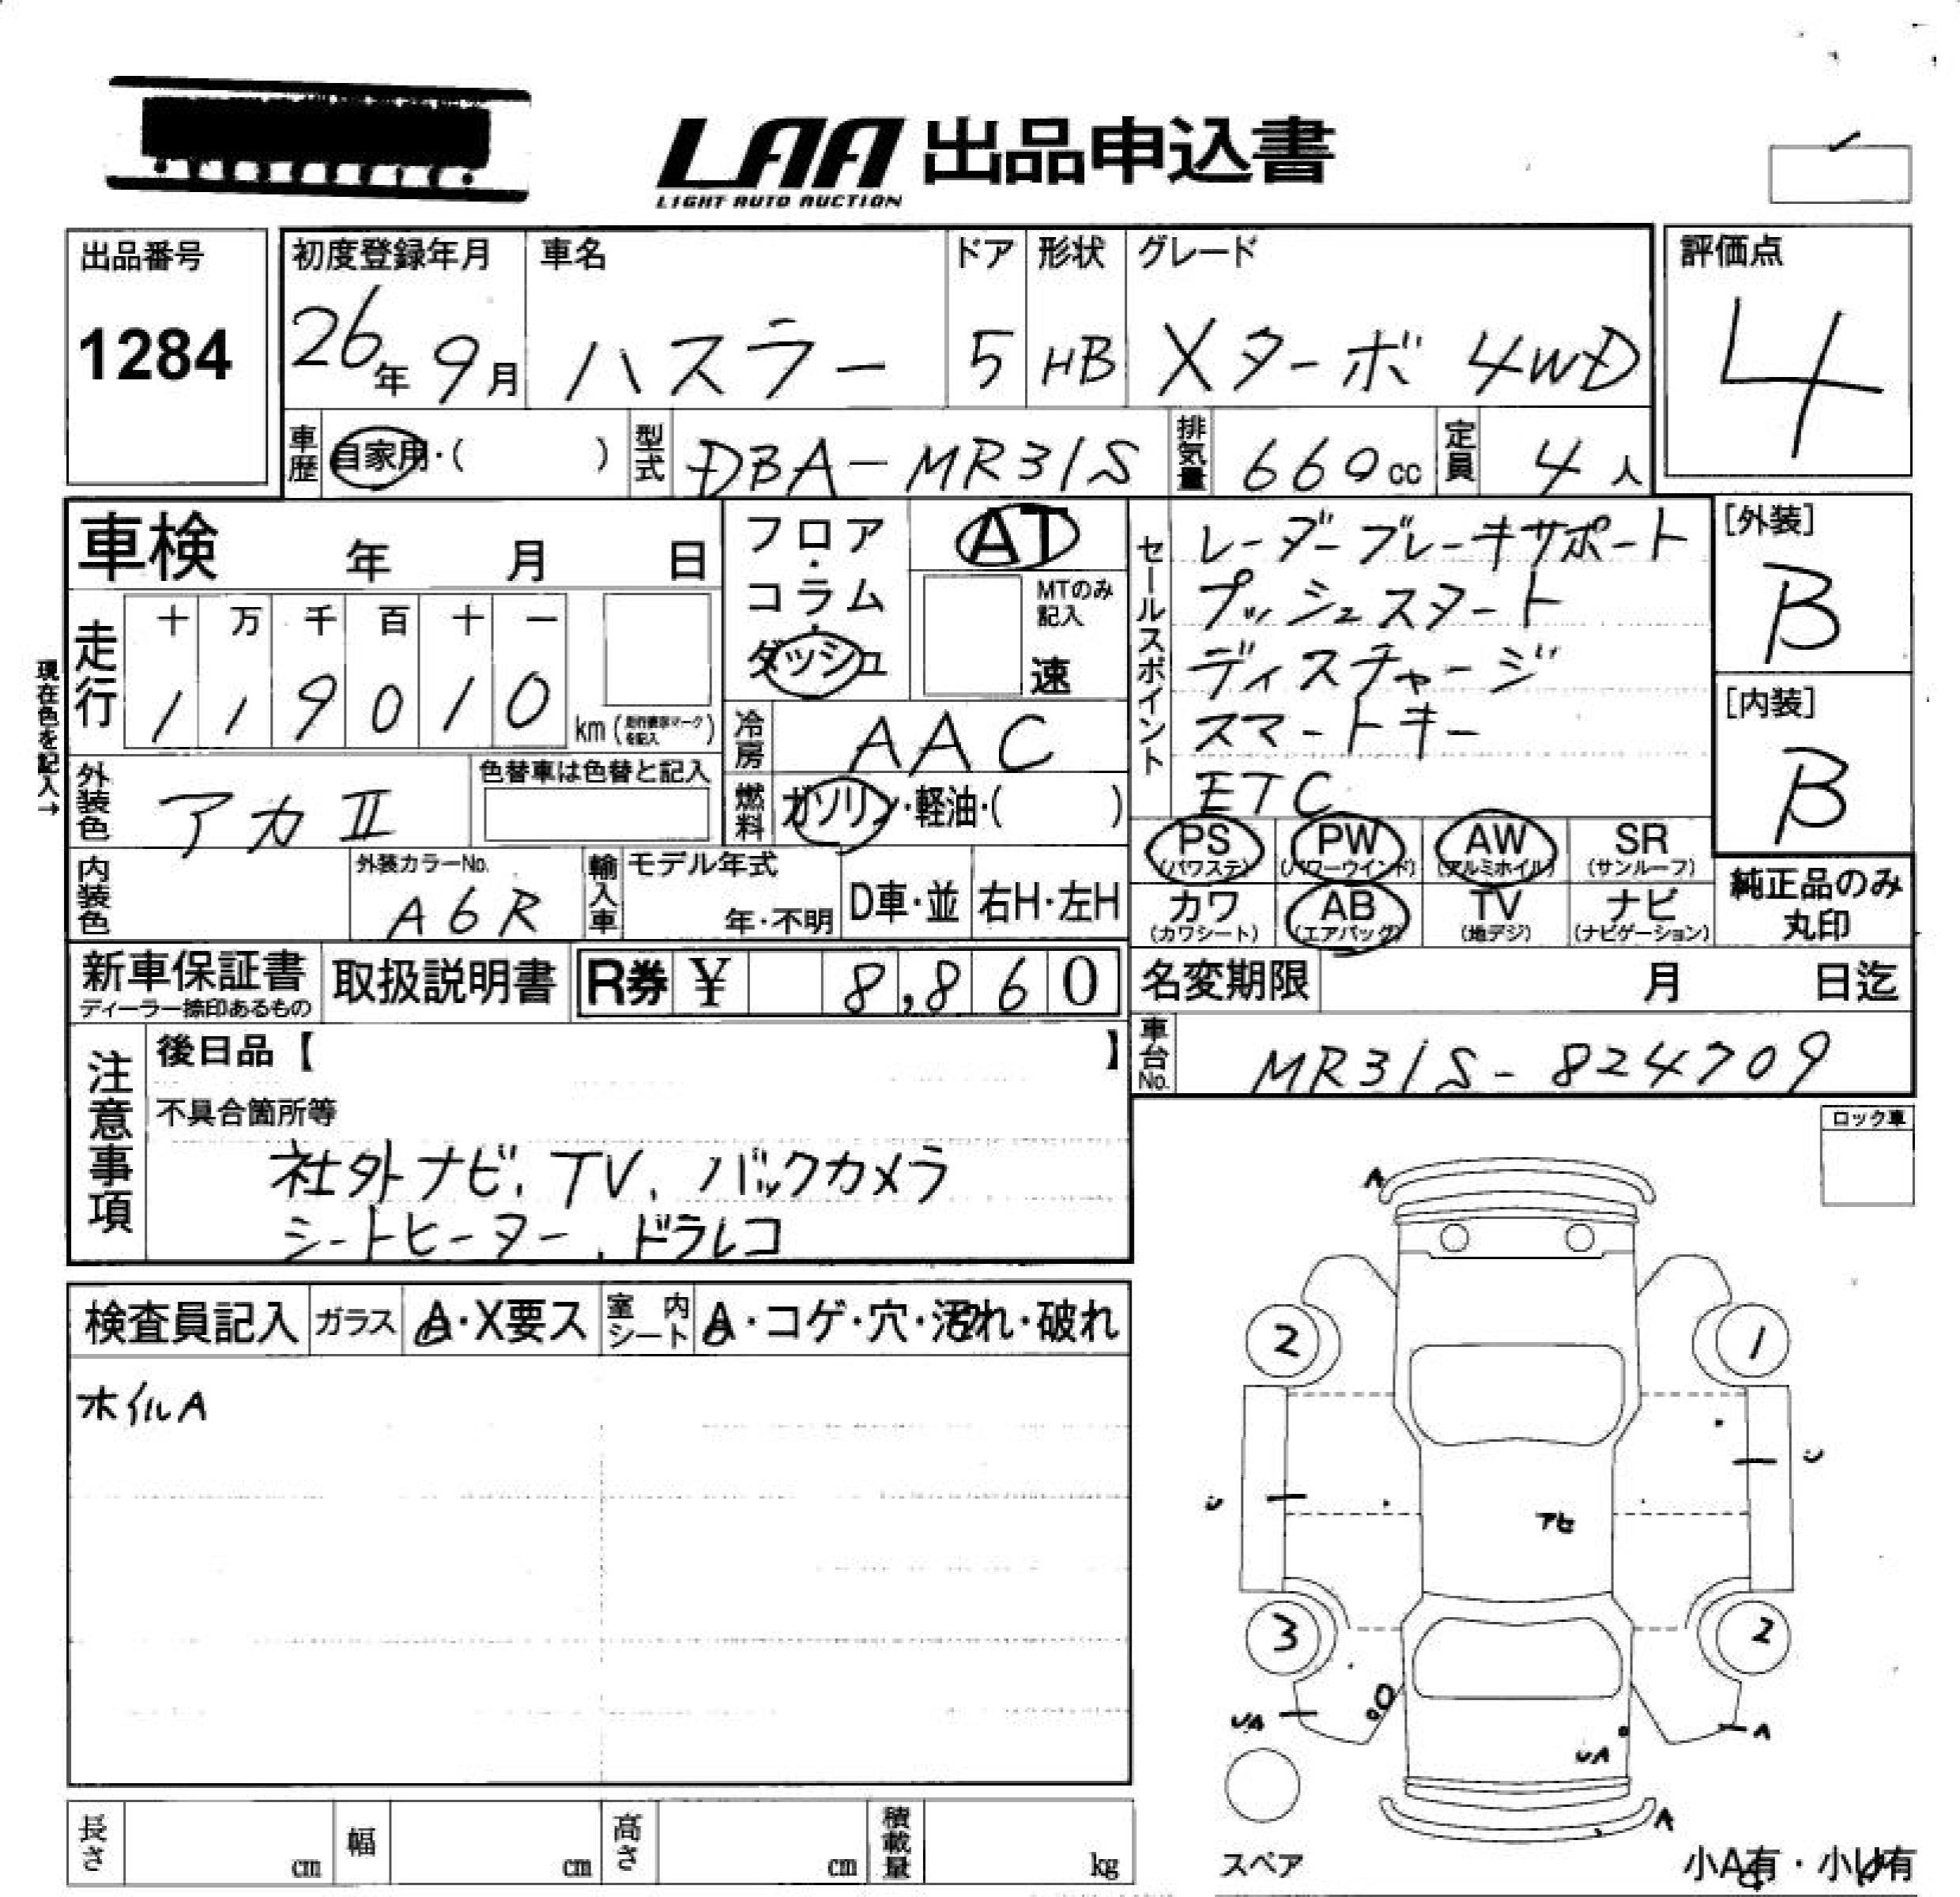 LAA 出品申込書
LIGHT AUTO AUCTION
出品番号
1284
初度登録年月
26年 9月
車名
ハスラー
ドア
5
形状
HB
グレード
Xターボ 4WD
評価点
4
車歴
自家用・( )
型式
DBA-MR31S
排気量
660cc
定員
4人
車検 年 月 日
フロア・コラム・ダッシュ
AT
MTのみ記入
速
セールスポイント
レーダーブレーキサポート
プッシュスタート
ディスチャージ
スマートキー
ETC
[外装]
B
[内装]
B
現在色を記入→
走行
十 万 千 百 十 一
1 1 9 0 1 0 km
冷房
AAC
外装色
アカⅡ
色替車は色替と記入
燃料
ガソリン・軽油・( )
内装色
外装カラーNo.
A6R
輸入車
モデル年式
年・不明
D車・並
右H・左H
PS (パワステ)
PW (パワーウインド)
AW (アルミホイル)
SR (サンルーフ)
カワ (カワシート)
AB (エアバッグ)
TV (地デジ)
ナビ (ナビゲーション)
純正品のみ
丸印
新車保証書
ディーラー捺印あるもの
取扱説明書
R券 ¥ 8,860
名変期限 月 日迄
車台No.
MR31S-824709
注意事項
後日品【 】
不具合箇所等
社外ナビ、TV、バックカメラ
シートヒーター、ドラレコ
ロック車
検査員記入
ガラス
A・X要ス
室内シート
A・コゲ・穴・汚れ・破れ
ホイルA
A
2
1
U
U
アセ
3
2
UA
A
UA
A
スペア
小A有・小U有
長さ cm
幅 cm
高さ cm
積載量 kg